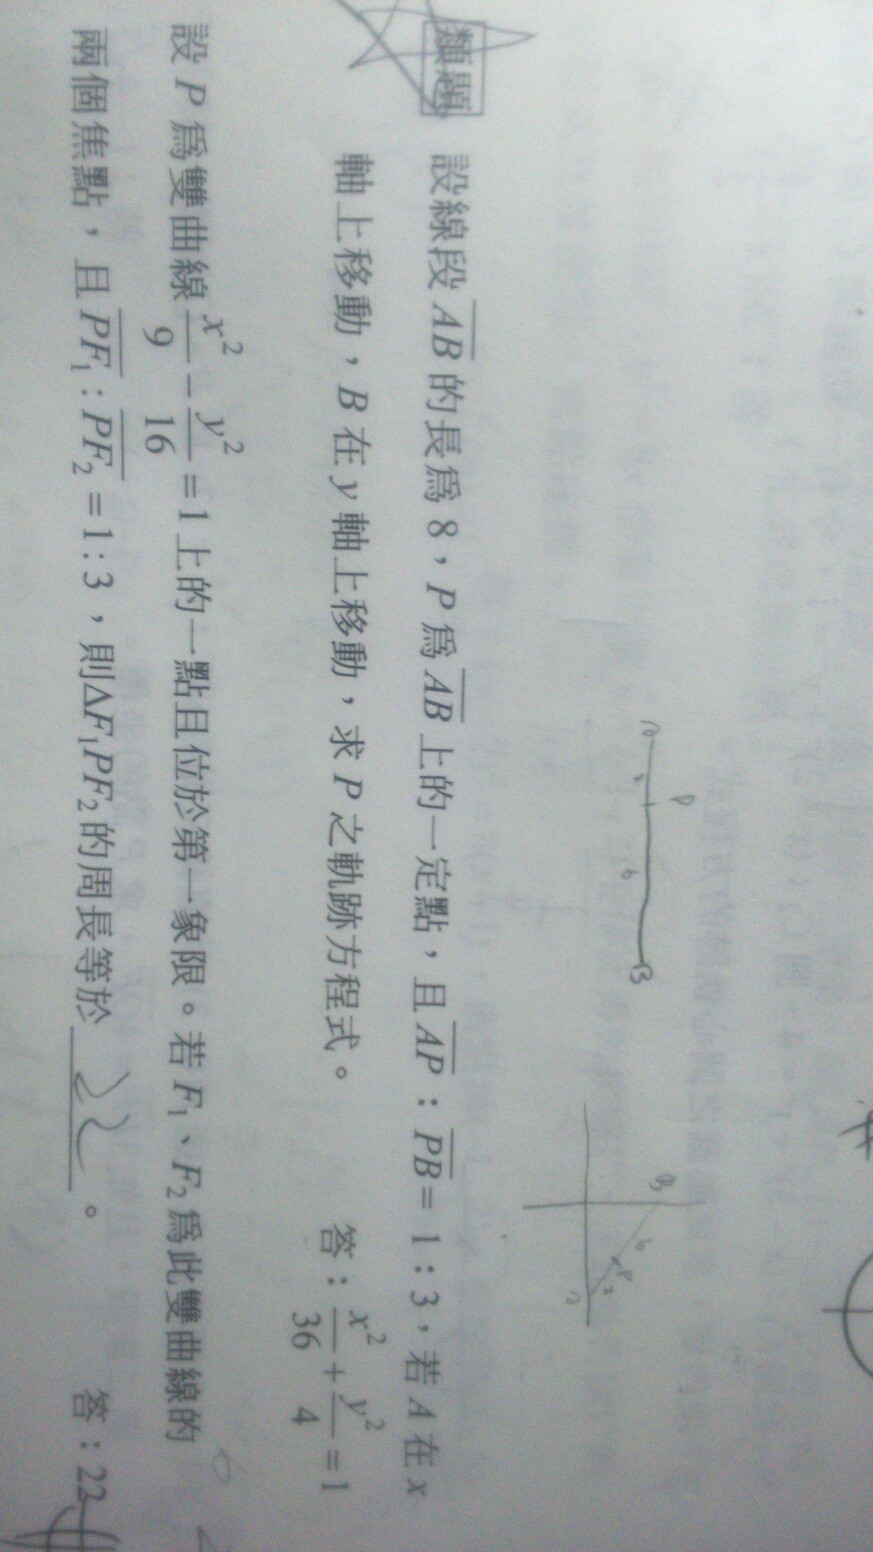 類題
設線段 AB 的長為 8，P 為 AB 上的一定點，且 AP : PB = 1 : 3，若 A 在 x
軸上移動，B 在 y 軸上移動，求 P 之軌跡方程式。
答：x²/36 + y²/4 = 1
設 P 為雙曲線 x²/9 - y²/16 = 1 上的一點且位於第一象限。若 F₁、F₂ 為此雙曲線的
兩個焦點，且 PF₁ : PF₂ = 1 : 3，則 ΔF₁PF₂ 的周長等於 22 。
答：22
P
B
6
B
6
P
2